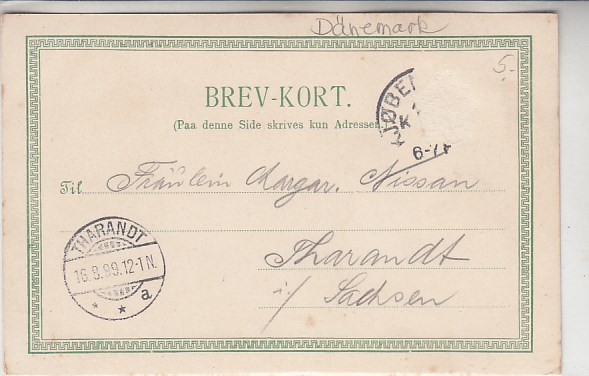 Dänemark
5.-
BREV-KORT.
(Paa denne Side skrives kun Adressen.)
KJØBEN
K
6-7
Til Fräulein Margar. Nissan
Tharandt
i/ Sachsen
THARANDT
16.8.99.12-1N.
* * a